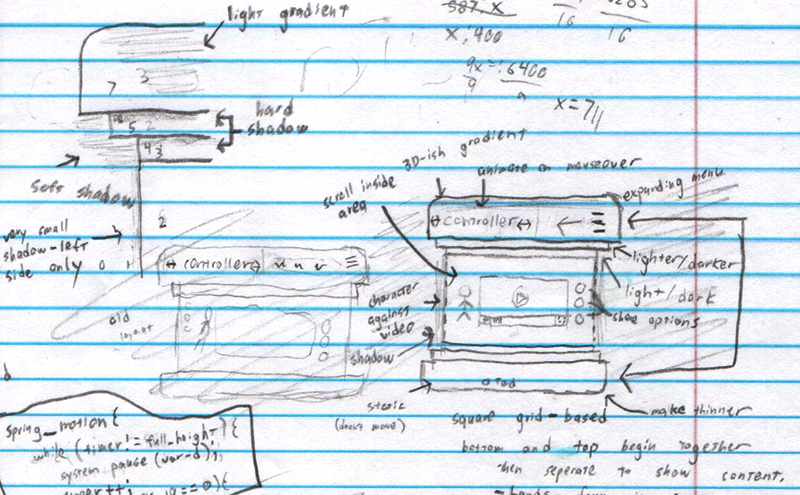 light gradient
7 3
hard
shadow
5 2
4 3
soft shadow
2
very small
shadow-left
side only
0 1
587 x
x, 400
16
16
9x = 6400
9
x = 711
3D-ish gradient
animate on mouseover
scroll inside
area
expanding menu
controller
lighter/darker
light/dark
share options
character
against
video
shadow
static
(doesn't move)
make thinner
controller
old
layout
square grid-based
bottom and top begin together
then seperate to show content.
spring_motion {
while (timer != full_height) {
system pause (var-d);